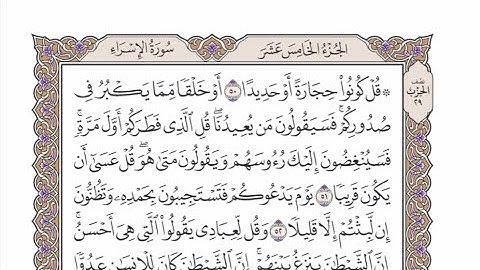 الجزء الخامس عشر
سورة الإسراء
نصف
الحزب
٢٩
۞ قُلْ كُونُوا۟ حِجَارَةً أَوْ حَدِيدًا ۝٥٠ أَوْ خَلْقًا مِّمَّا يَكْبُرُ فِى
صُدُورِكُمْ ۚ فَسَيَقُولُونَ مَن يُعِيدُنَا ۖ قُلِ ٱلَّذِى فَطَرَكُمْ أَوَّلَ مَرَّةٍ ۚ
فَسَيُنْغِضُونَ إِلَيْكَ رُءُوسَهُمْ وَيَقُولُونَ مَتَىٰ هُوَ ۖ قُلْ عَسَىٰٓ أَن
يَكُونَ قَرِيبًا ۝٥١ يَوْمَ يَدْعُوكُمْ فَتَسْتَجِيبُونَ بِحَمْدِهِۦ وَتَظُنُّونَ
إِن لَّبِثْتُمْ إِلَّا قَلِيلًا ۝٥٢ وَقُل لِّعِبَادِى يَقُولُوا۟ ٱلَّتِى هِىَ أَحْسَنُ ۚ
إِنَّ ٱلشَّيْطَٰنَ يَنزَغُ بَيْنَهُمْ ۚ إِنَّ ٱلشَّيْطَٰنَ كَانَ لِلْإِنسَٰنِ عَدُوًّا